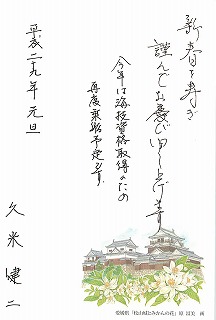 新春を寿ぎ
謹んでお慶び申し上げます
今年は海技資格取得のため
再度乗船予定です。
平成二九年元旦
久米健二
愛媛県「松山城とみかんの花」原 画